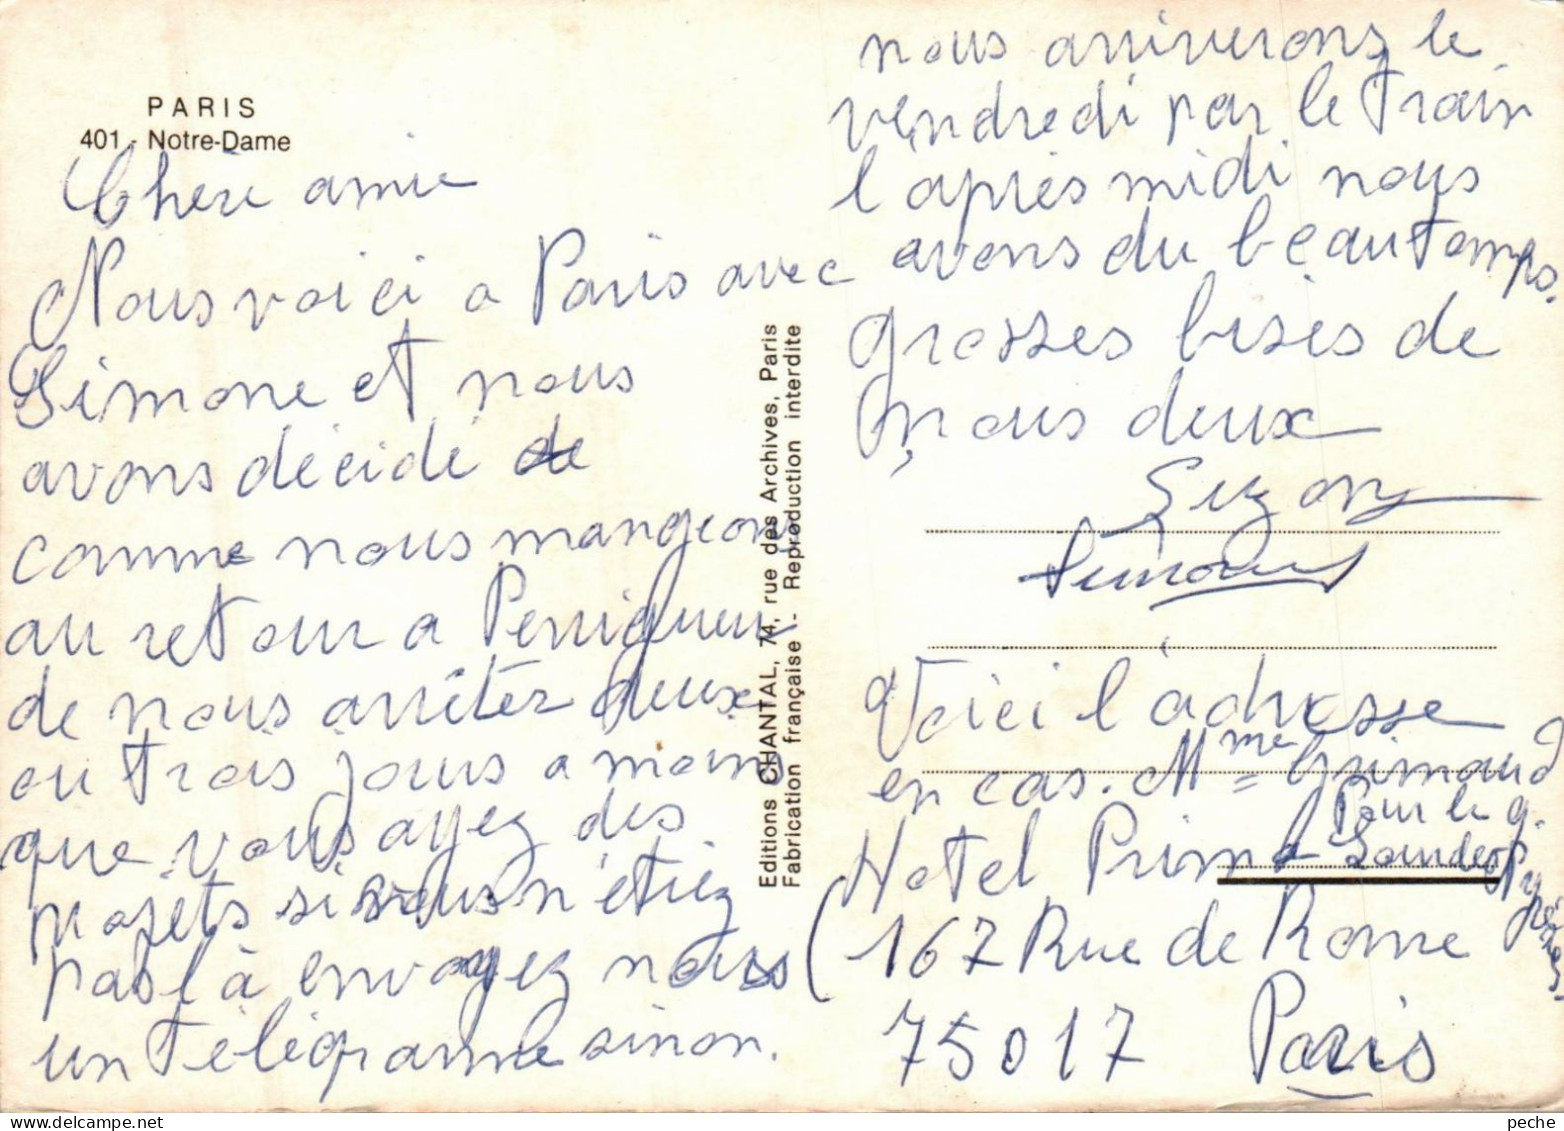 PARIS
401 - Notre-Dame
Chère amie
Nous voici a Paris avec
Simone et nous
avons décidé de
comme nous mangeons
au retour a Perigueux
de nous arrêter deux
ou trois jours a moins
que vous ayez des
projets si vous n'étiez
pas là envoyez nous
un télégramme sinon.
Editions CHANTAL, 74, rue des Archives, Paris
Fabrication française - Reproduction interdite
nous arriverons le
vendredi par le train
l'après midi nous
avons du beau temps.
grosses bises de
nous deux
Suzon
Simone
Voici l'adresse
en cas. Mme Grimaud
Pour le g.
Hotel Prima
167 Rue de Rome
75017 Paris
peche